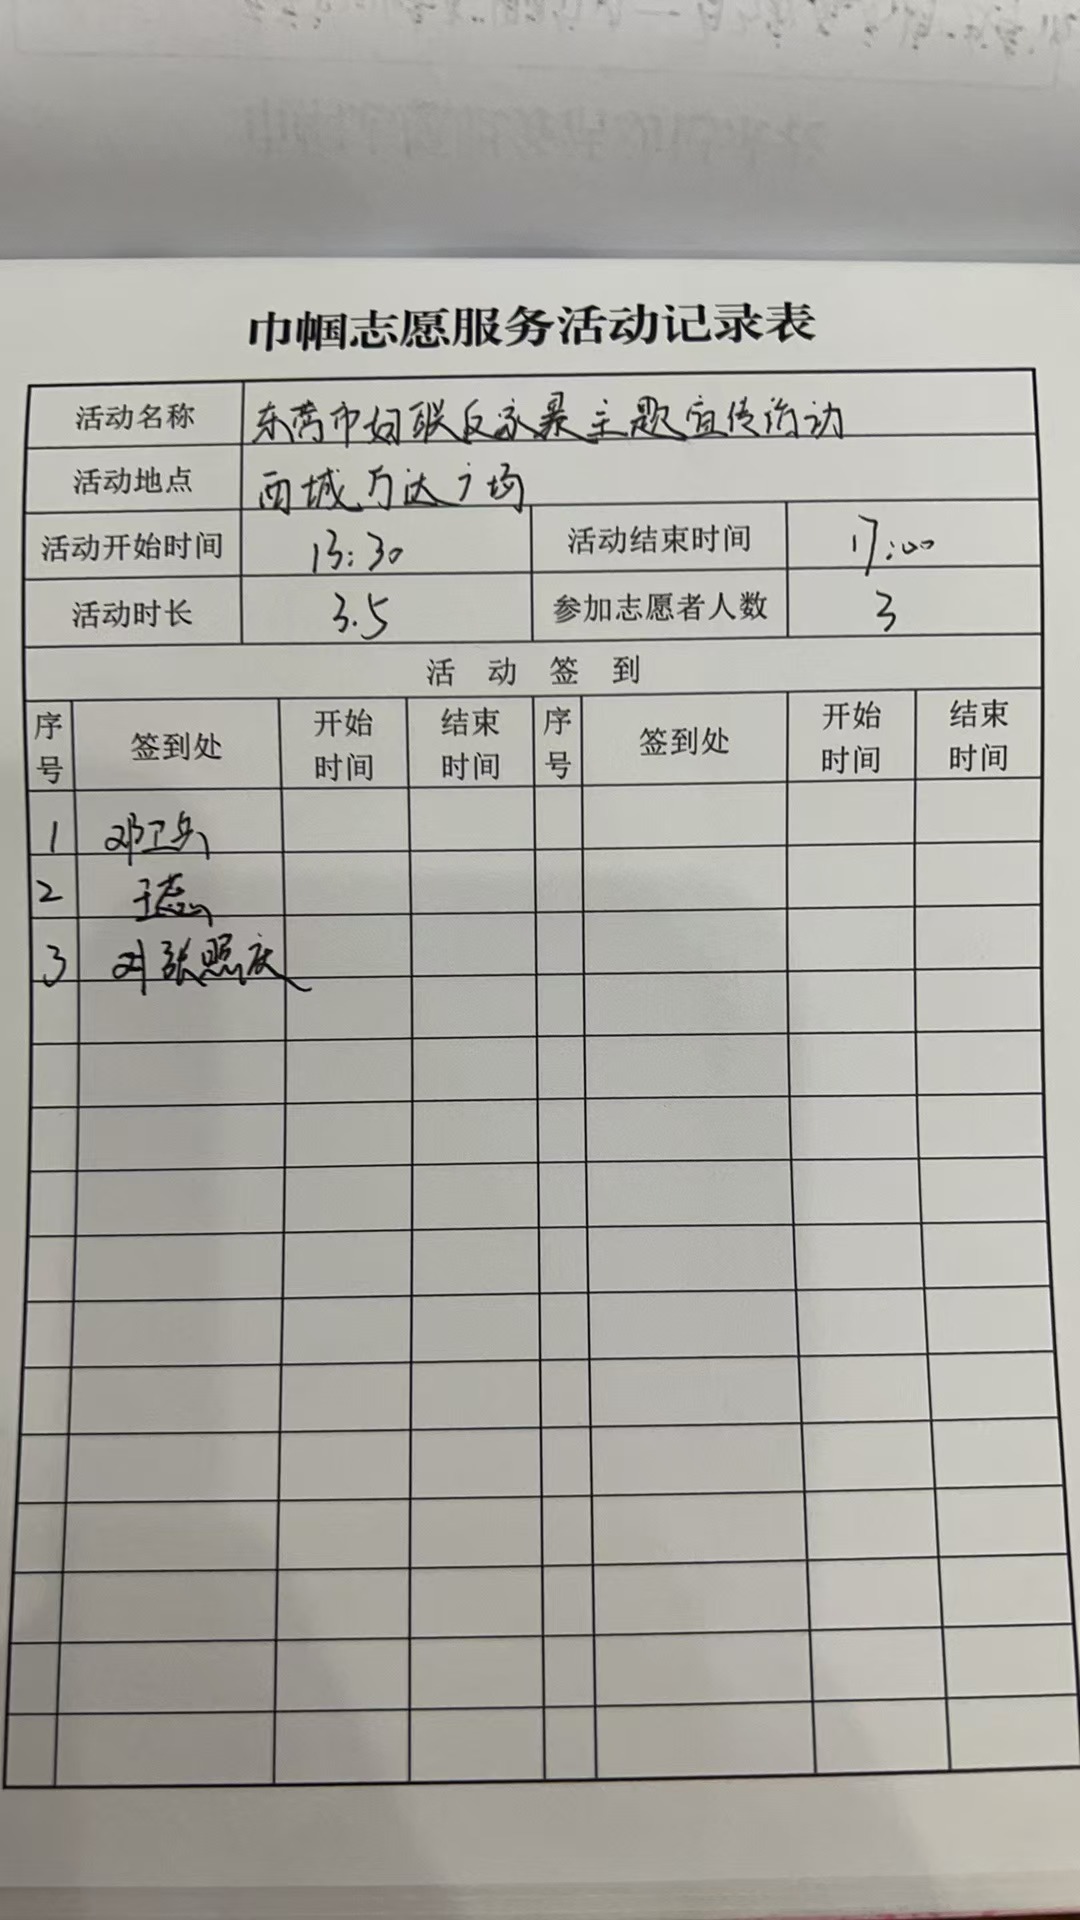 巾帼志愿服务活动记录表
活动名称 东营市妇联反家暴主题宣传活动
活动地点 西城万达广场
活动开始时间 13:30 活动结束时间 17:00
活动时长 3.5 参加志愿者人数 3
活动签到
序号 签到处 开始时间 结束时间 序号 签到处 开始时间 结束时间
1 邓卫兵
2 王蕊
3 张照庆